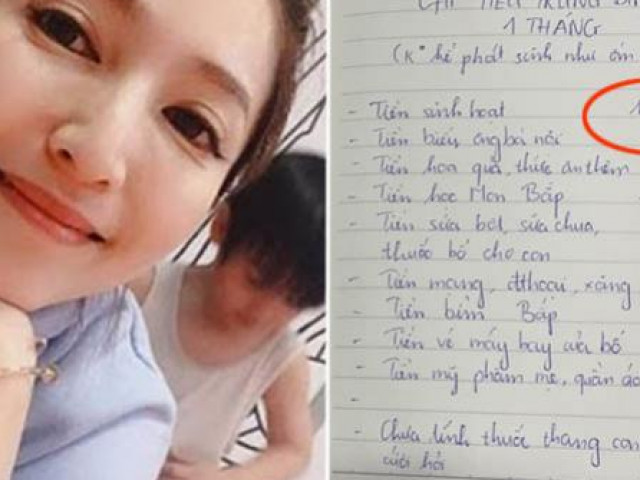 CHI TIÊU TRUNG BÌNH
1 THÁNG
(K° kể phát sinh như ốm
- Tiền sinh hoạt
- Tiền biếu ông bà nội
- Tiền hoa quả, thức ăn thêm
- Tiền học Mon Bắp
- Tiền sữa bột, sữa chua,
thuốc bổ cho con
- Tiền mạng, đthoại, xăng
- Tiền bỉm Bắp
- Tiền vé máy bay của bố
- Tiền mỹ phẩm mẹ, quần áo
-
- Chưa tính thuốc thang con
cưới hỏi